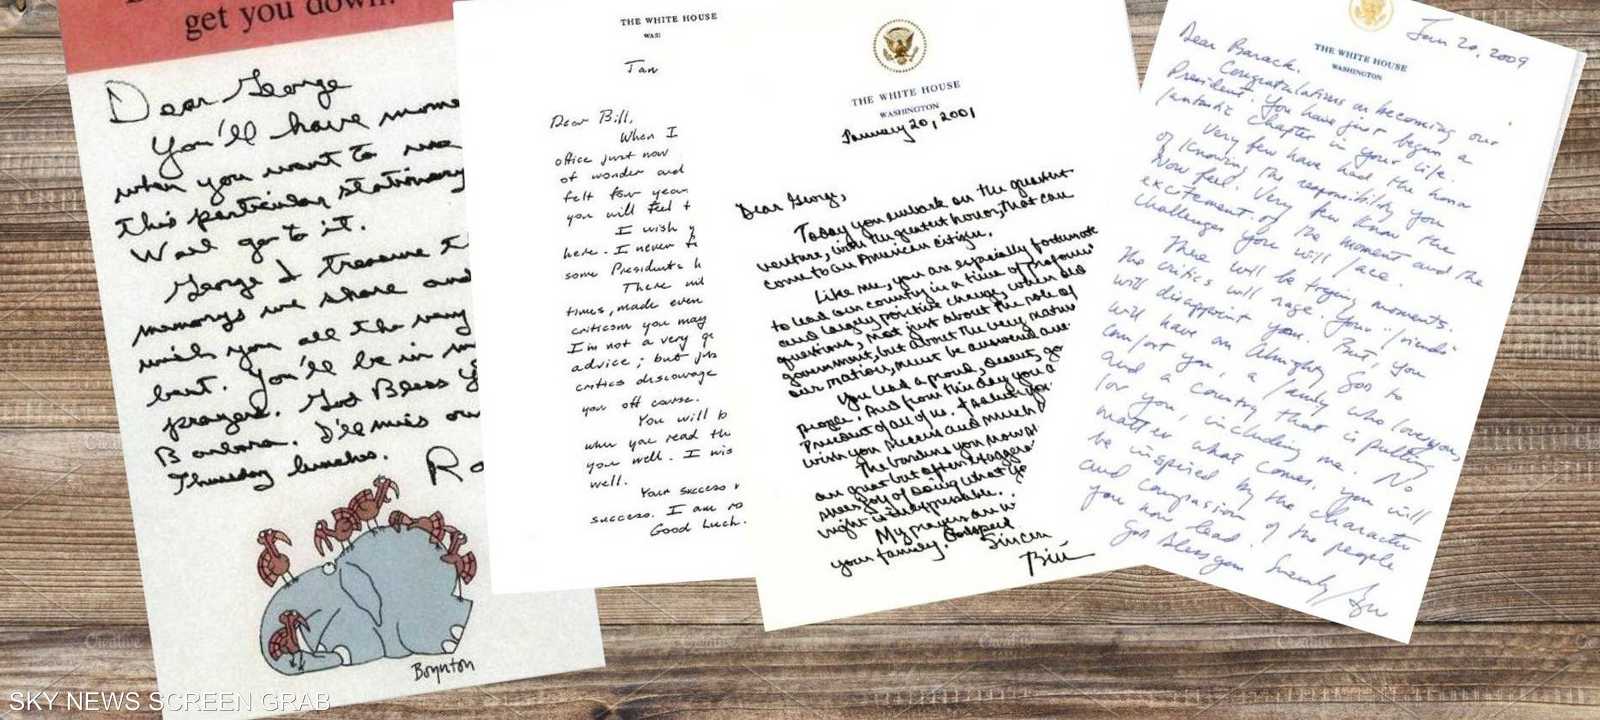 get you down.
Dear George
You'll have mome
when you want to use
this particular stationary
Well go to it.
George I treasure t
memorys we share and
wish you all the very
best. You'll be in m
prayers. God Bless Y
Barbara. I'll miss our
Thursday lunches.
Ro
Boynton
THE WHITE HOUSE
WASI
Jan
Dear Bill,
When I
office just now
of wonder and
felt four year
you will feel t
I wish y
here. I never fe
some Presidents h
There wil
times, made even
criticism you may
I'm not a very go
advice; but jus
critics discourage
you off course.
You will b
when you read thi
you well. I wis
well.
Your success
success. I am ro
Good Luck.
THE WHITE HOUSE
WASHINGTON
January 20, 2001
Dear George,
Today you embark on the greatest
venture, with the greatest honor, that can
come to an American citizen.
Like me, you are especially fortunate
to lead our country in a time of profound
and largely positive change, when old
questions, not just about the role of
government, but about the very nature
our nation, must be answered ane
You lead a proud, decent, go
people. And from this day you a
President of all of us. I salute you
wish you success and much h
The burdens you now sh
are great but often exaggera
sheer joy of doing what yo
right is inexpressible.
My prayers are w
your family. Godspeed
Sincere
Bill
Jan 20, 2009
THE WHITE HOUSE
WASHINGTON
Dear Barack,
Congratulations on becoming our
President. You have just begun a
fantastic chapter in your life.
Very few have had the honor
of knowing the responsibility you
now feel. Very few know the
excitement of the moment and the
challenges you will face.
There will be trying moments.
The critics will rage. Your "friends"
will disappoint you. But, you
will have an Almighty God to
comfort you, a family who loves you,
and a country that is pulling
for you, including me. No
matter what comes, you will
be inspired by the character
and compassion of the people
you now lead.
God bless you.
Sincerely,
SKY NEWS SCREEN GRAB